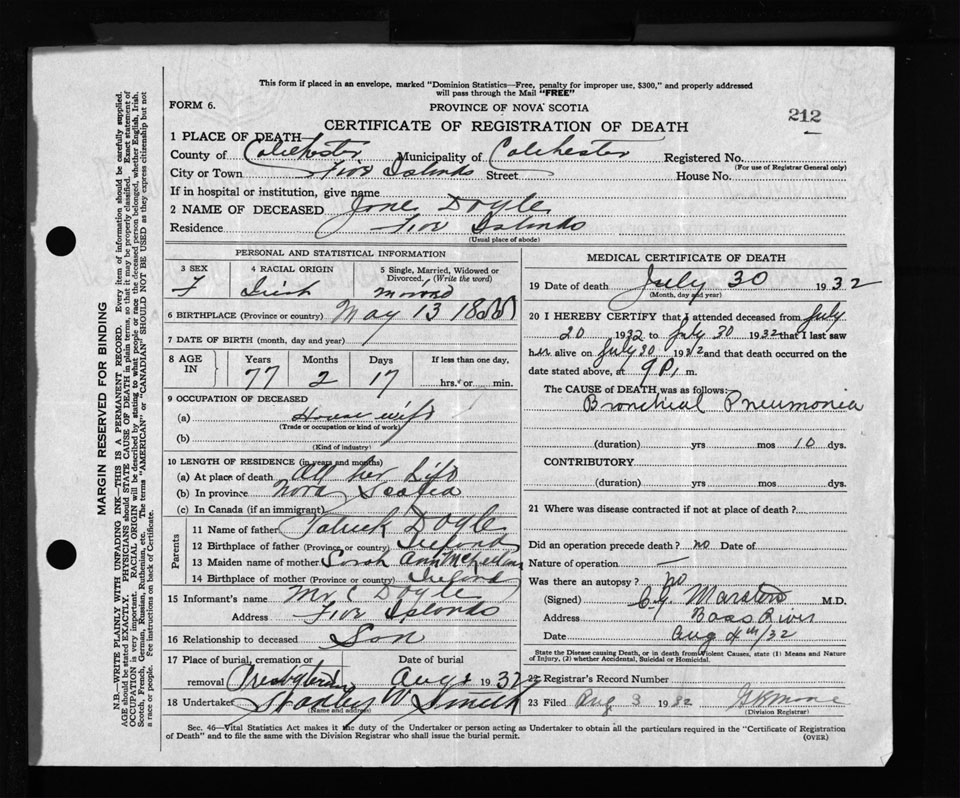 This form if placed in an envelope, marked "Dominion Statistics—Free, penalty for improper use, $300," and properly addressed
will pass through the Mail "FREE"
FORM 6.
PROVINCE OF NOVA SCOTIA
212
CERTIFICATE OF REGISTRATION OF DEATH
1 PLACE OF DEATH—
County of Colchester Municipality of Colchester Registered No.
(For use of Registrar General only)
City or Town Five Islands Street House No.
If in hospital or institution, give name
2 NAME OF DECEASED Jane Doyle
Residence Five Islands
(Usual place of abode)
PERSONAL AND STATISTICAL INFORMATION
3 SEX 4 RACIAL ORIGIN 5 Single, Married, Widowed or Divorced. (Write the word)
F Irish Married
6 BIRTHPLACE (Province or country) May 13 1855
7 DATE OF BIRTH (month, day and year)
8 AGE IN Years Months Days If less than one day,
77 2 17 hrs. or min.
9 OCCUPATION OF DECEASED
(a) House wife
(Trade or occupation or kind of work)
(b)
(Kind of industry)
10 LENGTH OF RESIDENCE (in years and months)
(a) At place of death All her Life
(b) In province Nova Scotia
(c) In Canada (if an immigrant)
Parents
11 Name of father Patrick Doyle
12 Birthplace of father (Province or country) Ireland
13 Maiden name of mother Sarah Ann
14 Birthplace of mother (Province or country) Ireland
15 Informant's name Mr C Doyle
Address Five Islands
16 Relationship to deceased Son
17 Place of burial, cremation or removal Presbyterian Date of burial Aug 1932
18 Undertaker Stanley W Smith
(Name and address)
MEDICAL CERTIFICATE OF DEATH
19 Date of death July 30 1932
(Month, day and year)
20 I HEREBY CERTIFY that I attended deceased from July
20 1932 to July 30 1932 that I last saw
her alive on July 30 1932 and that death occurred on the
date stated above, at 9 P. m.
The CAUSE of DEATH was as follows:
Bronchial Pneumonia
(duration) yrs mos 10 dys.
CONTRIBUTORY
(duration) yrs mos dys.
21 Where was disease contracted if not at place of death?
Did an operation precede death? no Date of
Nature of operation —
Was there an autopsy? no
(Signed) Marston M.D.
Address Bass River
Date Aug 4th/32
State the Disease causing Death, or in death from Violent Causes, state (1) Means and Nature
of Injury, (2) whether Accidental, Suicidal or Homicidal.
22 Registrar's Record Number
23 Filed Aug 3 1932
(Division Registrar)
Sec. 46—Vital Statistics Act makes it the duty of the Undertaker or person acting as Undertaker to obtain all the particulars required in the "Certificate of Registration
of Death" and to file the same with the Division Registrar who shall issue the burial permit.
(OVER)
MARGIN RESERVED FOR BINDING
N.B.—WRITE PLAINLY WITH UNFADING INK—THIS IS A PERMANENT RECORD. Every item of information should be carefully supplied.
AGE should be stated EXACTLY. PHYSICIANS should STATE CAUSE OF DEATH in plain terms, so that it may be properly classified. Exact statement of
OCCUPATION is very important. RACIAL ORIGIN will be described by stating to what people or race the deceased person belonged, whether English, Irish,
Scotch, French, German, Russian, Ruthenian, etc. The terms "AMERICAN" or "CANADIAN" SHOULD NOT BE USED as they express citizenship but not
a race or people. See instructions on back of Certificate.